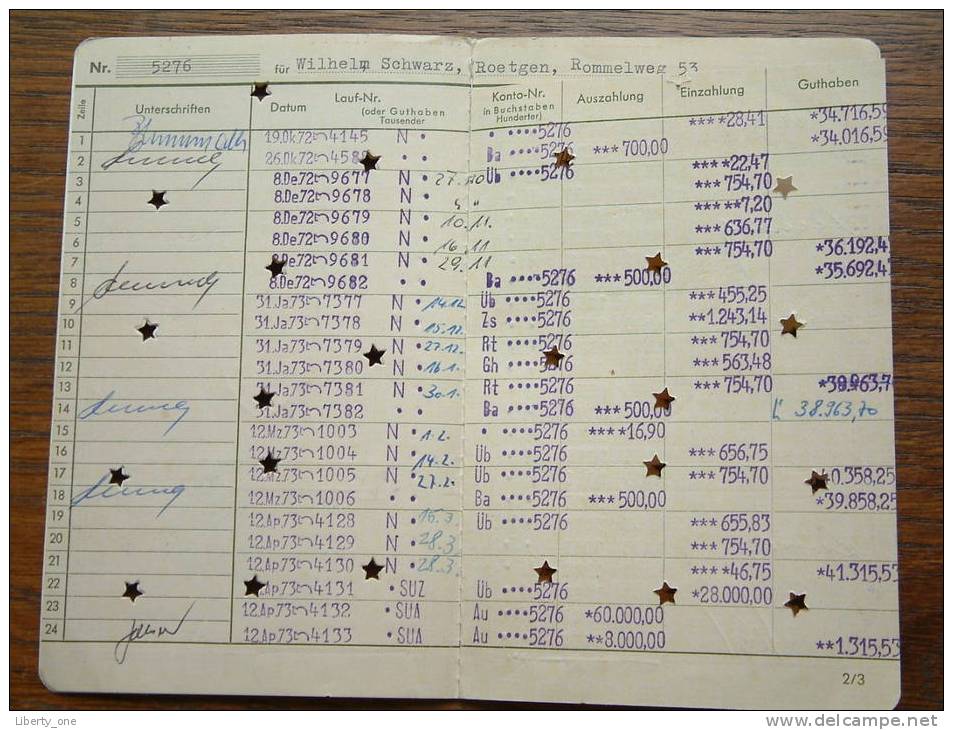 Nr. 5276 für Wilhelm Schwarz, Roetgen, Rommelweg 53
Zeile Unterschriften Datum Lauf-Nr. (oder Guthaben Tausender Konto-Nr. in Buchstaben Hunderter) Auszahlung Einzahlung Guthaben
1 19.Ok72 4145 N • • ••••5276 ****28,41 *34.716,59
2 26.Ok72 458 • • Ba ••••5276 ***700,00 *34.016,59
3 8.De72 9677 N • Üb ••••5276 ****22,47
4 8.De72 9678 N • ***754,70
5 8.De72 9679 N • 10.11. *****7,20
6 8.De72 9680 N • 16.11 ***636,77
7 8.De72 9681 N • 29.11 ***754,70 *36.192,4
8 8.De72 9682 • • Ba ••••5276 ***500,00 *35.692,4
9 31.Ja73 7377 N • 14.12 Üb ••••5276 ***455,25
10 31.Ja73 7378 N • 15.12. Zs ••••5276 **1.243,14
11 31.Ja73 7379 N • 27.12. Rt ••••5276 ***754,70
12 31.Ja73 7380 N • 16.1. Gh ••••5276 ***563,48
13 31.Ja73 7381 N • 30.1. Rt ••••5276 ***754,70
14 31.Ja73 7382 • • Ba ••••5276 ***500,00 38.963,70
15 12.Mz73 1003 N • 1.2. • ••••5276 ****16,90
16 12.Mz73 1004 N • 14.2. Üb ••••5276 ***656,75
17 12.Mz73 1005 N • 27.2. Üb ••••5276 ***754,70 0.358,25
18 12.Mz73 1006 • • Ba ••••5276 ***500,00 *39.858,25
19 12.Ap73 4128 N • 15.3. Üb ••••5276 ***655,83
20 12.Ap73 4129 N • 28.3 ***754,70
21 12.Ap73 4130 N • 28.3. ****46,75 *41.315,53
22 12.Ap73 4131 • SUZ Üb ••••5276 *28.000,00
23 12.Ap73 4132 • SUA Au ••••5276 *60.000,00
24 12.Ap73 4133 • SUA Au ••••5276 **8.000,00 **1.315,53
2/3
Liberty_one
www.delcampe.net